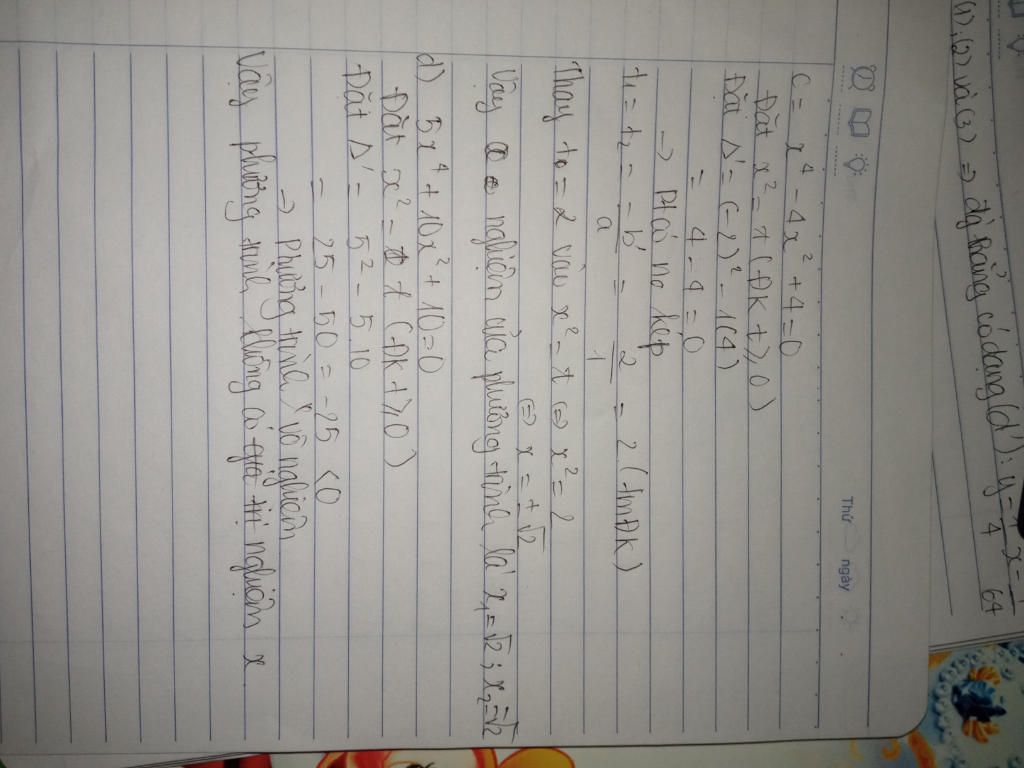 (1), (2) và (3) => đt Parabol có dạng (d'): y = 1/4 x - 1/64
Thứ ngày
c = x⁴ - 4x² + 4 = 0
Đặt x² = t (ĐK t ≥ 0)
Đặt Δ' = (-2)² - 1(4)
= 4 - 4 = 0
→ Pt có no kép
t₁ = t₂ = -b'/a = 2/1 = 2 (tmĐK)
Thay t₀ = 2 vào x² = t ⇔ x² = 2
⇔ x = ±√2
Vậy nghiệm của phương trình là x₁ = √2 ; x₂ = -√2
d) 5x⁴ + 10x² + 10 = 0
Đặt x² = t (ĐK t ≥ 0)
Đặt Δ' = 5² - 5.10
= 25 - 50 = -25 < 0
→ Phương trình vô nghiệm
Vậy phương trình không có nghiệm x